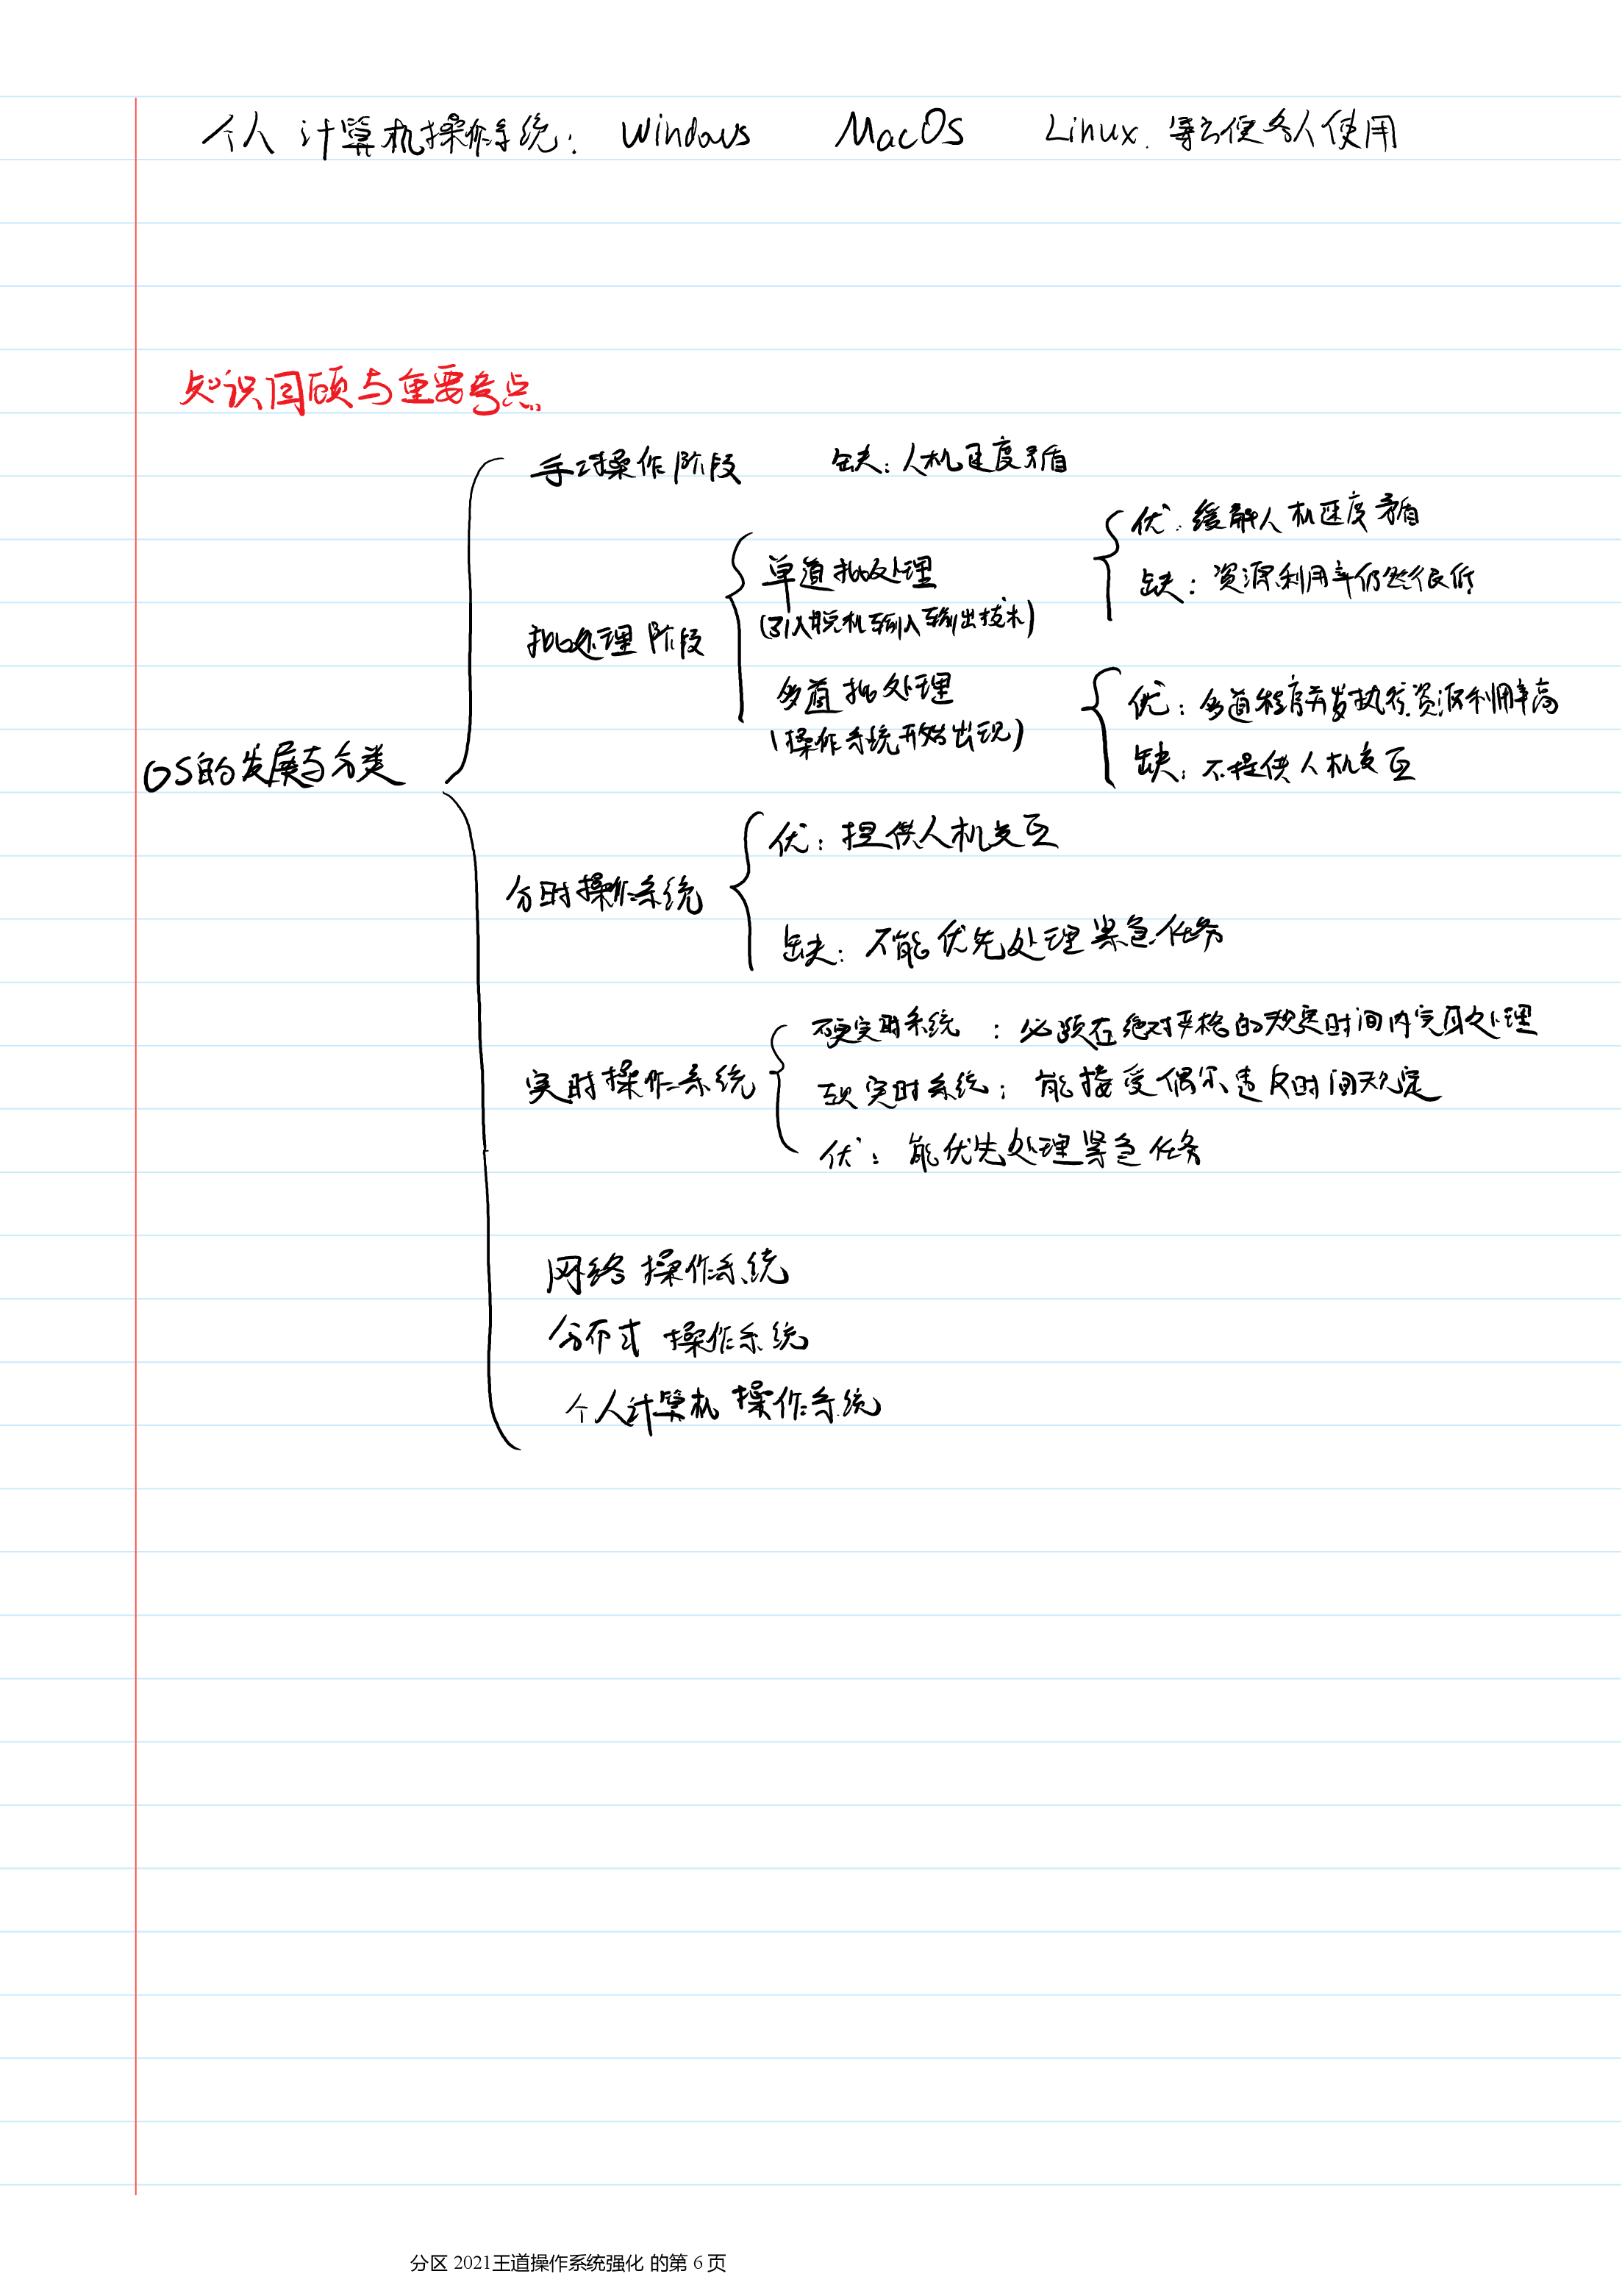 个人计算机操作系统: Windows MacOS Linux. 等方便个人使用
知识回顾与重要考点
手工操作阶段 缺: 人机速度矛盾
优: 缓解人机速度矛盾
单道批处理
缺: 资源利用率仍然很低
(引入脱机输入输出技术)
批处理阶段
多道批处理
优: 多道程序并发执行,资源利用率高
(操作系统开始出现)
缺: 不提供人机交互
OS的发展与分类
优: 提供人机交互
分时操作系统
缺: 不能优先处理紧急任务
硬实时系统 : 必须在绝对严格的规定时间内完成处理
实时操作系统
软实时系统: 能接受偶尔违反时间规定
优: 能优先处理紧急任务
网络操作系统
分布式操作系统
个人计算机操作系统
分区 2021王道操作系统强化 的第 6 页